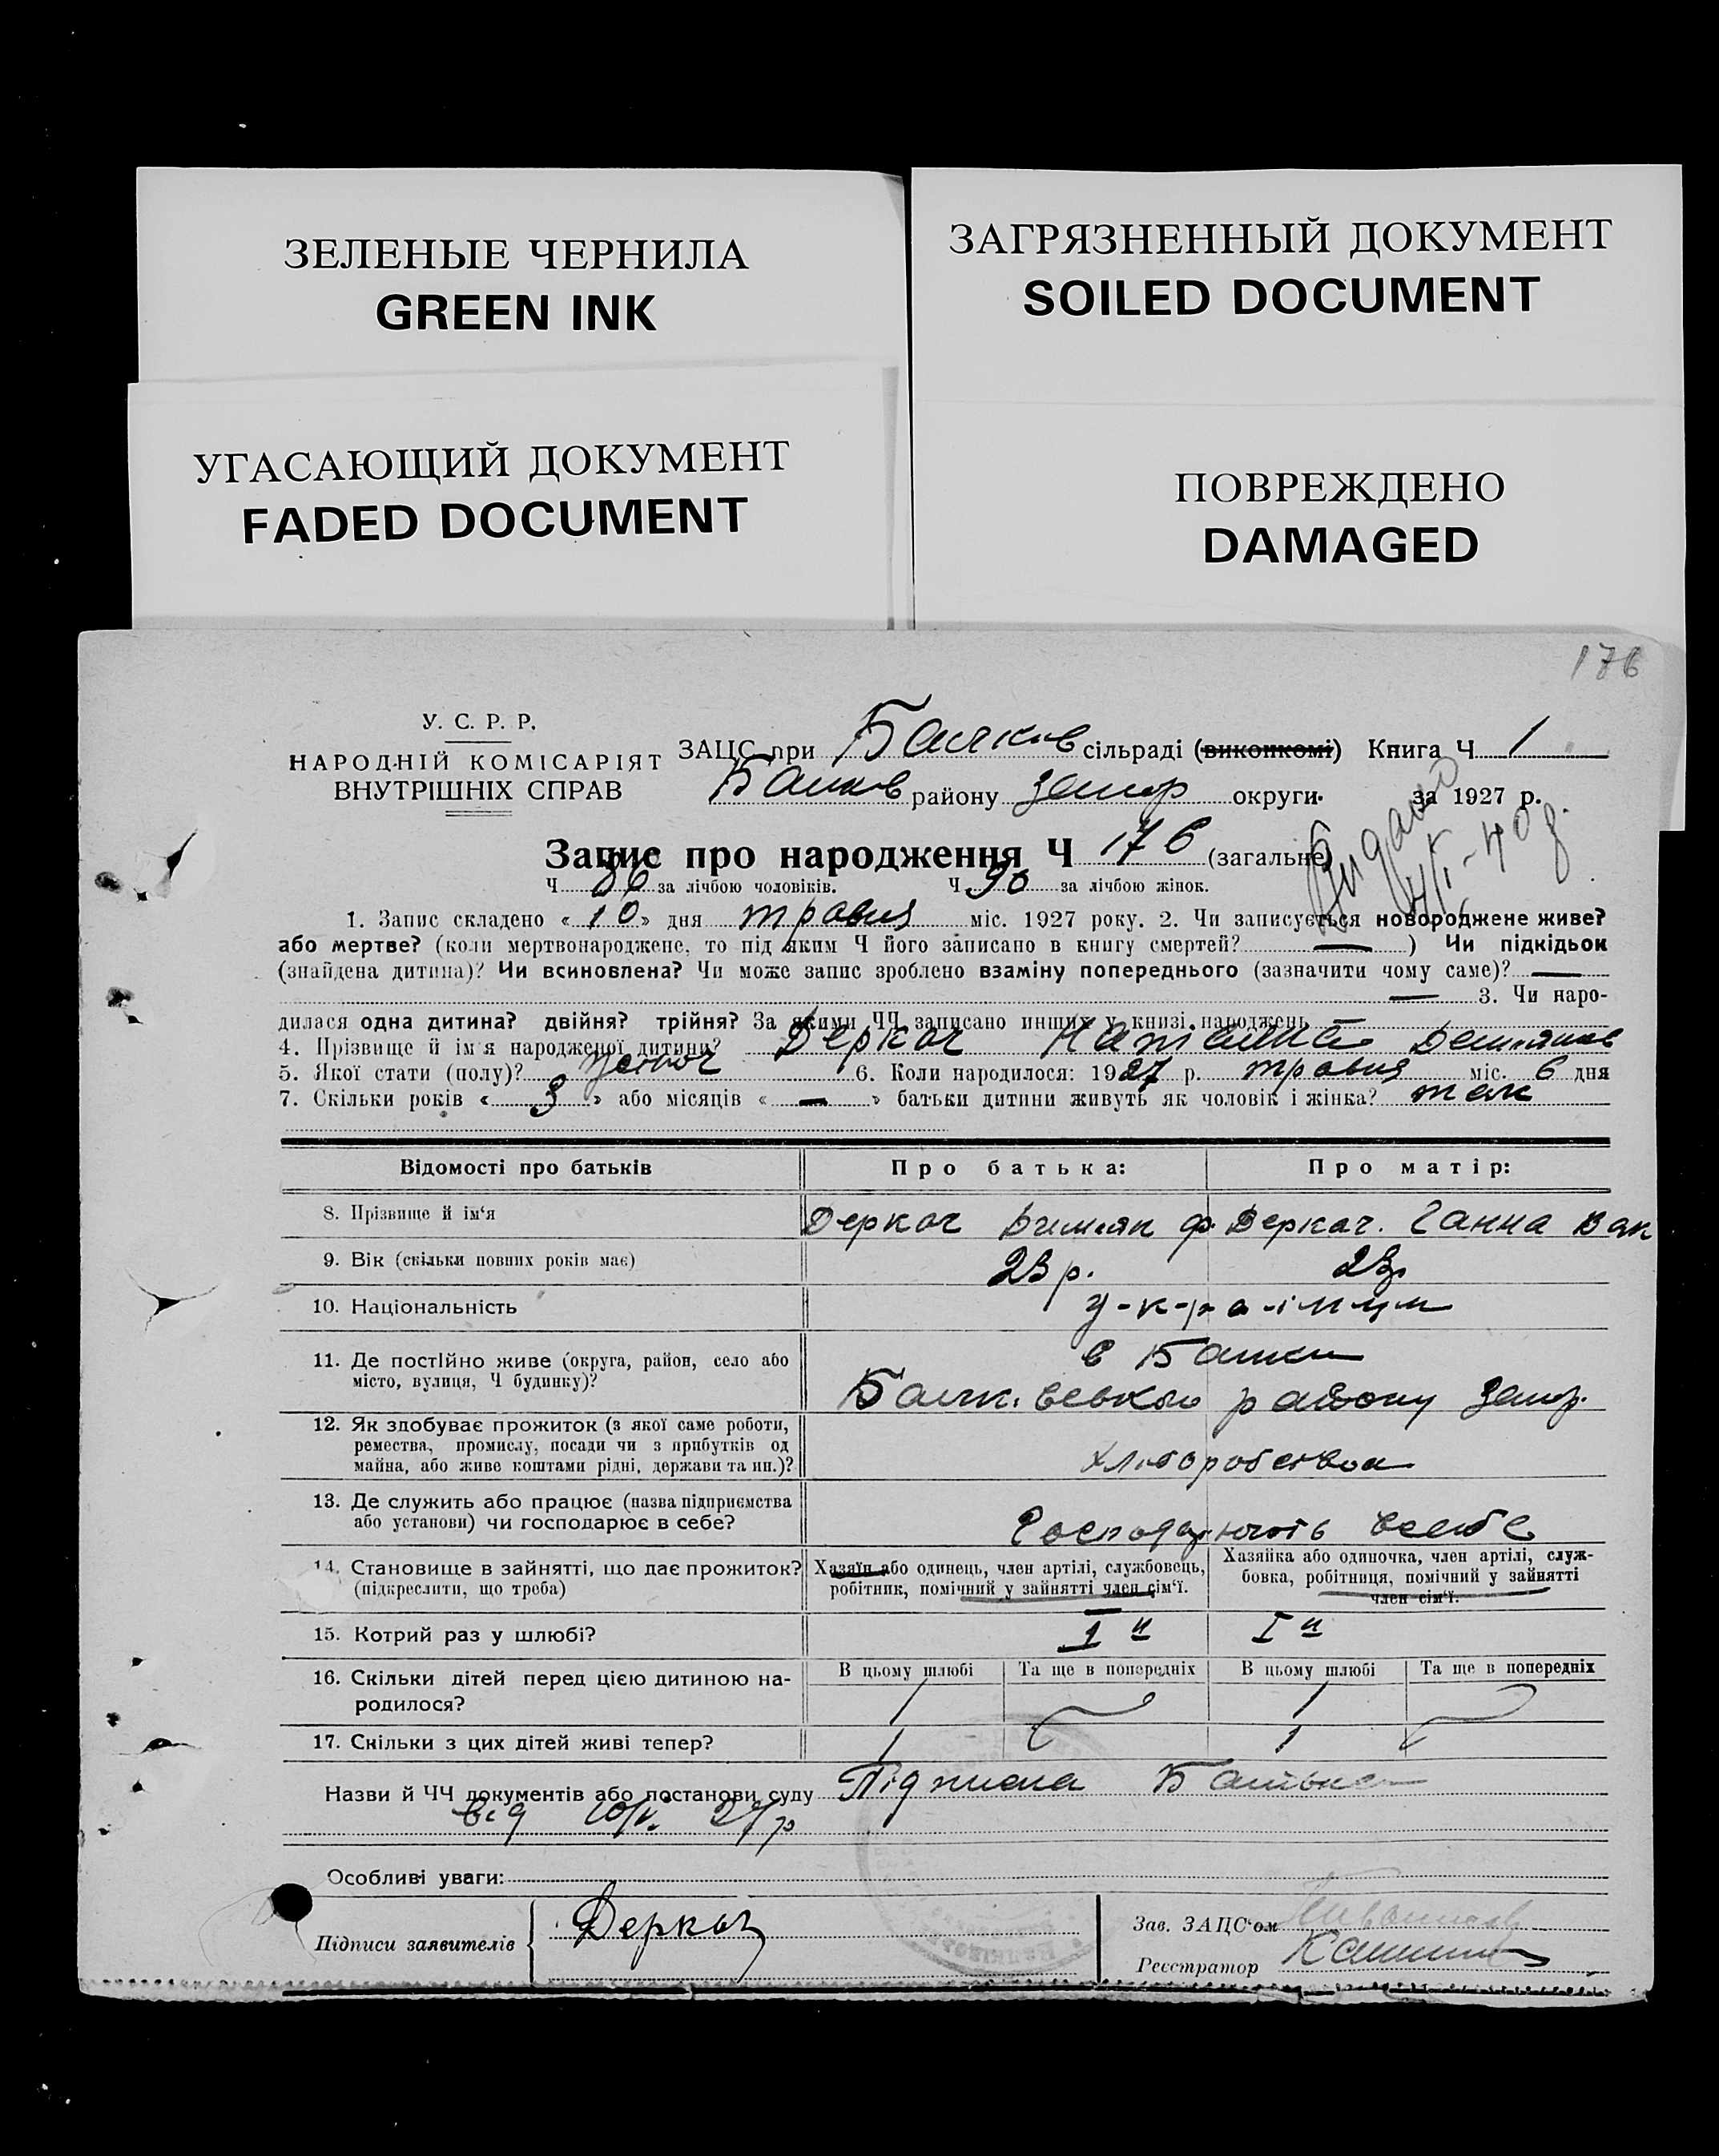 ЗЕЛЕНЫЕ ЧЕРНИЛА
GREEN INK
ЗАГРЯЗНЕННЫЙ ДОКУМЕНТ
SOILED DOCUMENT
УГАСАЮЩИЙ ДОКУМЕНТ
FADED DOCUMENT
ПОВРЕЖДЕНО
DAMAGED
176
У. С. Р. Р.
НАРОДНІЙ КОМІСАРІЯТ
ВНУТРІШНІХ СПРАВ
ЗАЦС при Балков сільраді (виконкомі) Книга Ч 1
Балков району Запор округи за 1927 р.
Видано
Запис про народження Ч 176 (загальне)
Ч 86 за лічбою чоловіків. Ч 90 за лічбою жінок.
1. Запис складено « 10 » дня травня міс. 1927 року. 2. Чи записується новороджене живе?
або мертве? (коли мертвонароджене, то під яким Ч його записано в книгу смертей? — ) Чи підкідьок
(знайдена дитина)? Чи всиновлена? Чи може запис зроблено взаміну попереднього (зазначити чому саме)? —
— 3. Чи наро-
дилася одна дитина? двійня? трійня? За якими ЧЧ записано инших у книзі народжень
4. Прізвище й ім'я народженої дитини? Деркач
5. Якої стати (полу)? жіноч 6. Коли народилося: 1927 р. травня міс. 6 дня
7. Скільки років « 3 » або місяців « — » батьки дитини живуть як чоловік і жінка? так
Відомості про батьків Про батька: Про матір:
8. Прізвище й ім'я Деркач Деркач. Ганна Вак
9. Вік (скільки повних років має) 23 р. 23р
10. Національність у-к-р-а-їнци
11. Де постійно живе (округа, район, село або
місто, вулиця, Ч будинку)?
в Балки
району Запор.
12. Як здобуває прожиток (з якої саме роботи,
ремества, промислу, посади чи з прибутків од
майна, або живе коштами рідні, держави та ин.)?
хліборобством
13. Де служить або працює (назва підприємства
або установи) чи господарює в себе?
Господарюють
14. Становище в зайнятті, що дає прожиток?
(підкреслити, що треба)
Хазяїн або одинець, член артілі, службовець,
робітник, помічний у зайнятті член сім'ї.
Хазяйка або одиночка, член артілі, служ-
бовка, робітниця, помічний у зайнятті
член сім'ї.
15. Котрий раз у шлюбі? I й I й
16. Скільки дітей перед цією дитиною на-
родилося?
В цьому шлюбі Та ще в попередніх В цьому шлюбі Та ще в попередніх
1 1
17. Скільки з цих дітей живі тепер? 1 1
Назви й ЧЧ документів або постанови суду Підписка Батька
від 10/V. 27 р
Особливі уваги:
Підписи заявителів Деркач
Зав. ЗАЦС'ом
Реєстратор